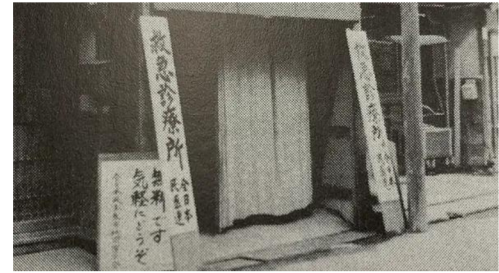 救急診療所
全日本
民医連
無料です
気軽にどうぞ
救急診療所